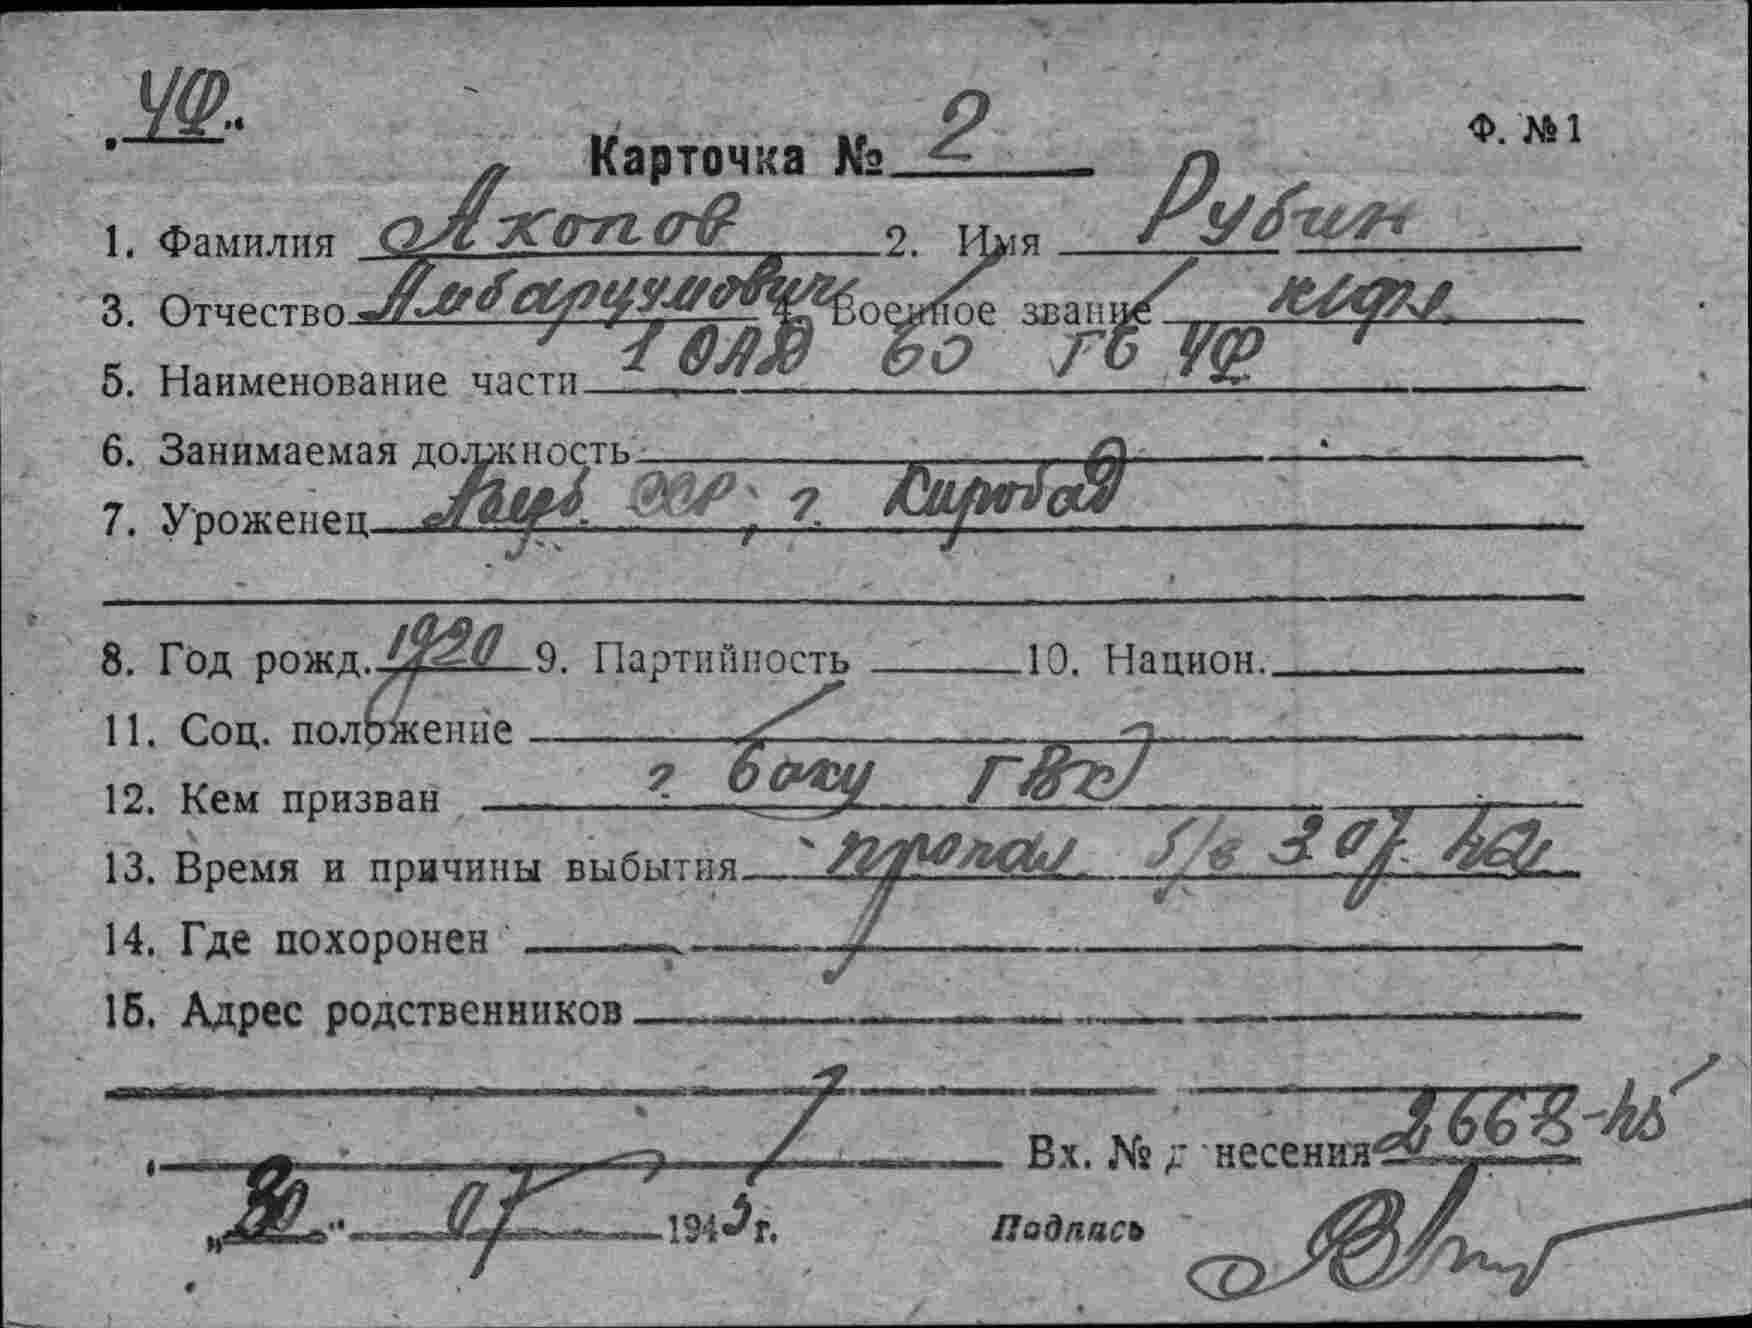 ЧФ.
Ф. №1
Карточка № 2
1. Фамилия Акопов 2. Имя Рубин
3. Отчество Амбарцумович 4. Военное звание к/фл
5. Наименование части 1 ОАД БО ГБ ЧФ
6. Занимаемая должность
7. Уроженец Азерб. ССР, г. Кировабад
8. Год рожд. 1920 9. Партийность 10. Национ.
11. Соц. положение
12. Кем призван г. Баку ГВК
13. Время и причины выбытия пропал б/в 3.07. 42г
14. Где похоронен
15. Адрес родственников
Вх. № донесения 2668-
„30" 07 1943 г. Подпись